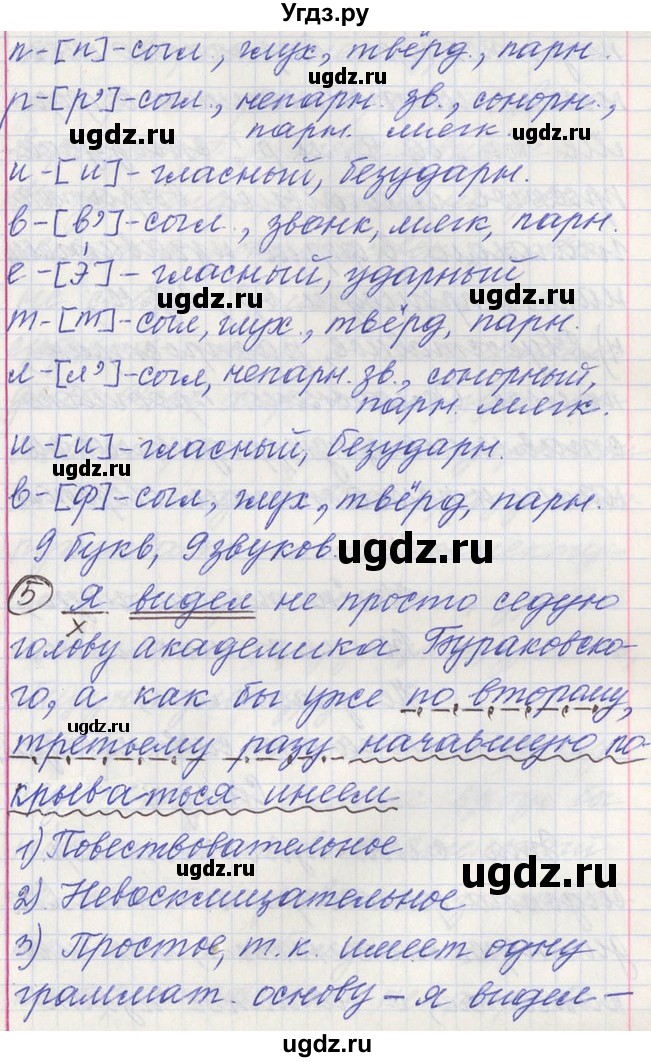 Угдз.ру
п-[п]-согл., глух., твёрд., парн.
ugdz.ru
р-[р']-согл., непарн. зв., сонорн.,
парн. мягк
ugdz.ru ugdz.ru
и-[и]-гласный, безударн.
в-[в']-согл., звонк, мягк, парн.
е-[э́]-гласный, ударный
ugdz.ru
т-[т]-согл, глух., твёрд, парн.
ugdz.ru
л-[л']-согл, непарн. зв., сонорный,
парн. мягк.
и-[и]-гласный, безударн.
ugdz.ru
в-[ф]-согл, глух, твёрд, парн.
9 букв, 9 звуков.
ugdz.ru
5 Я видел не просто седую
х
голову академика Бураковско-
го, а как бы уже по второму,
ugdz.ru
третьему разу начавшую по-
крываться инеем
1) Повествовательное
ugdz.ru
2) Невосклицательное
3) Простое, т.к. имеет одну
граммат. основу - я видел -
ugdz.ru ugdz.ru